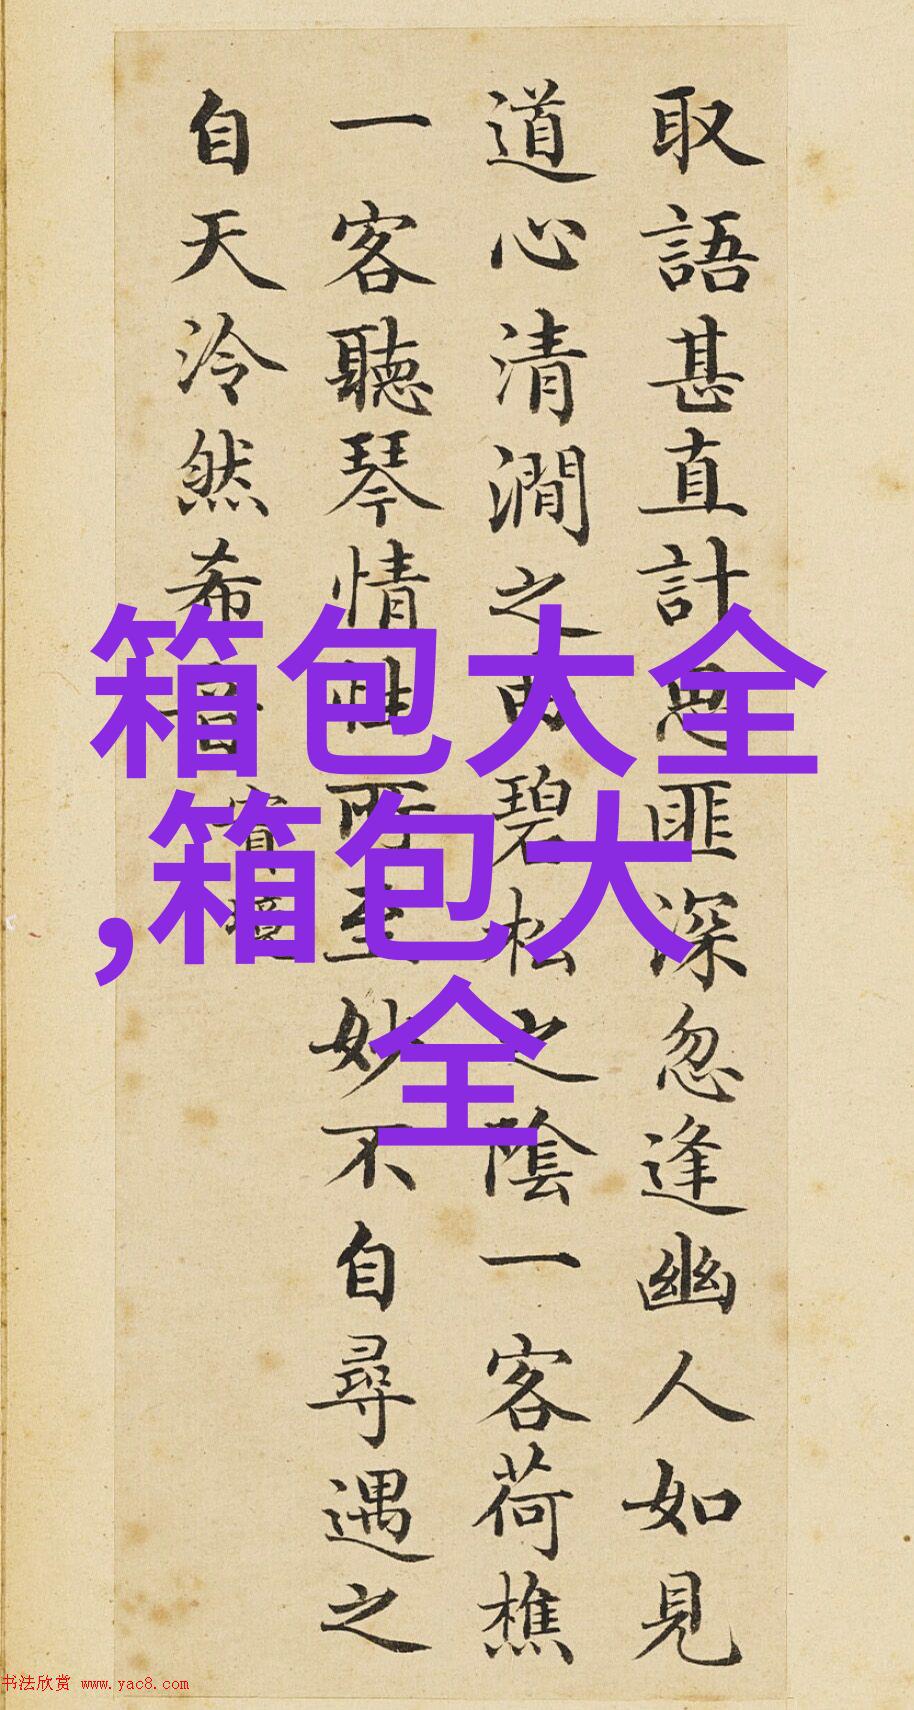 取語甚直計思匪深忽逢幽人如見
道心清澗之曲碧松之陰一客荷樵
一客聽琴情性所至妙不自尋遇之
自天泠然希音
實境
箱包大全
,箱包大
全
书法欣赏 www.yac8.com